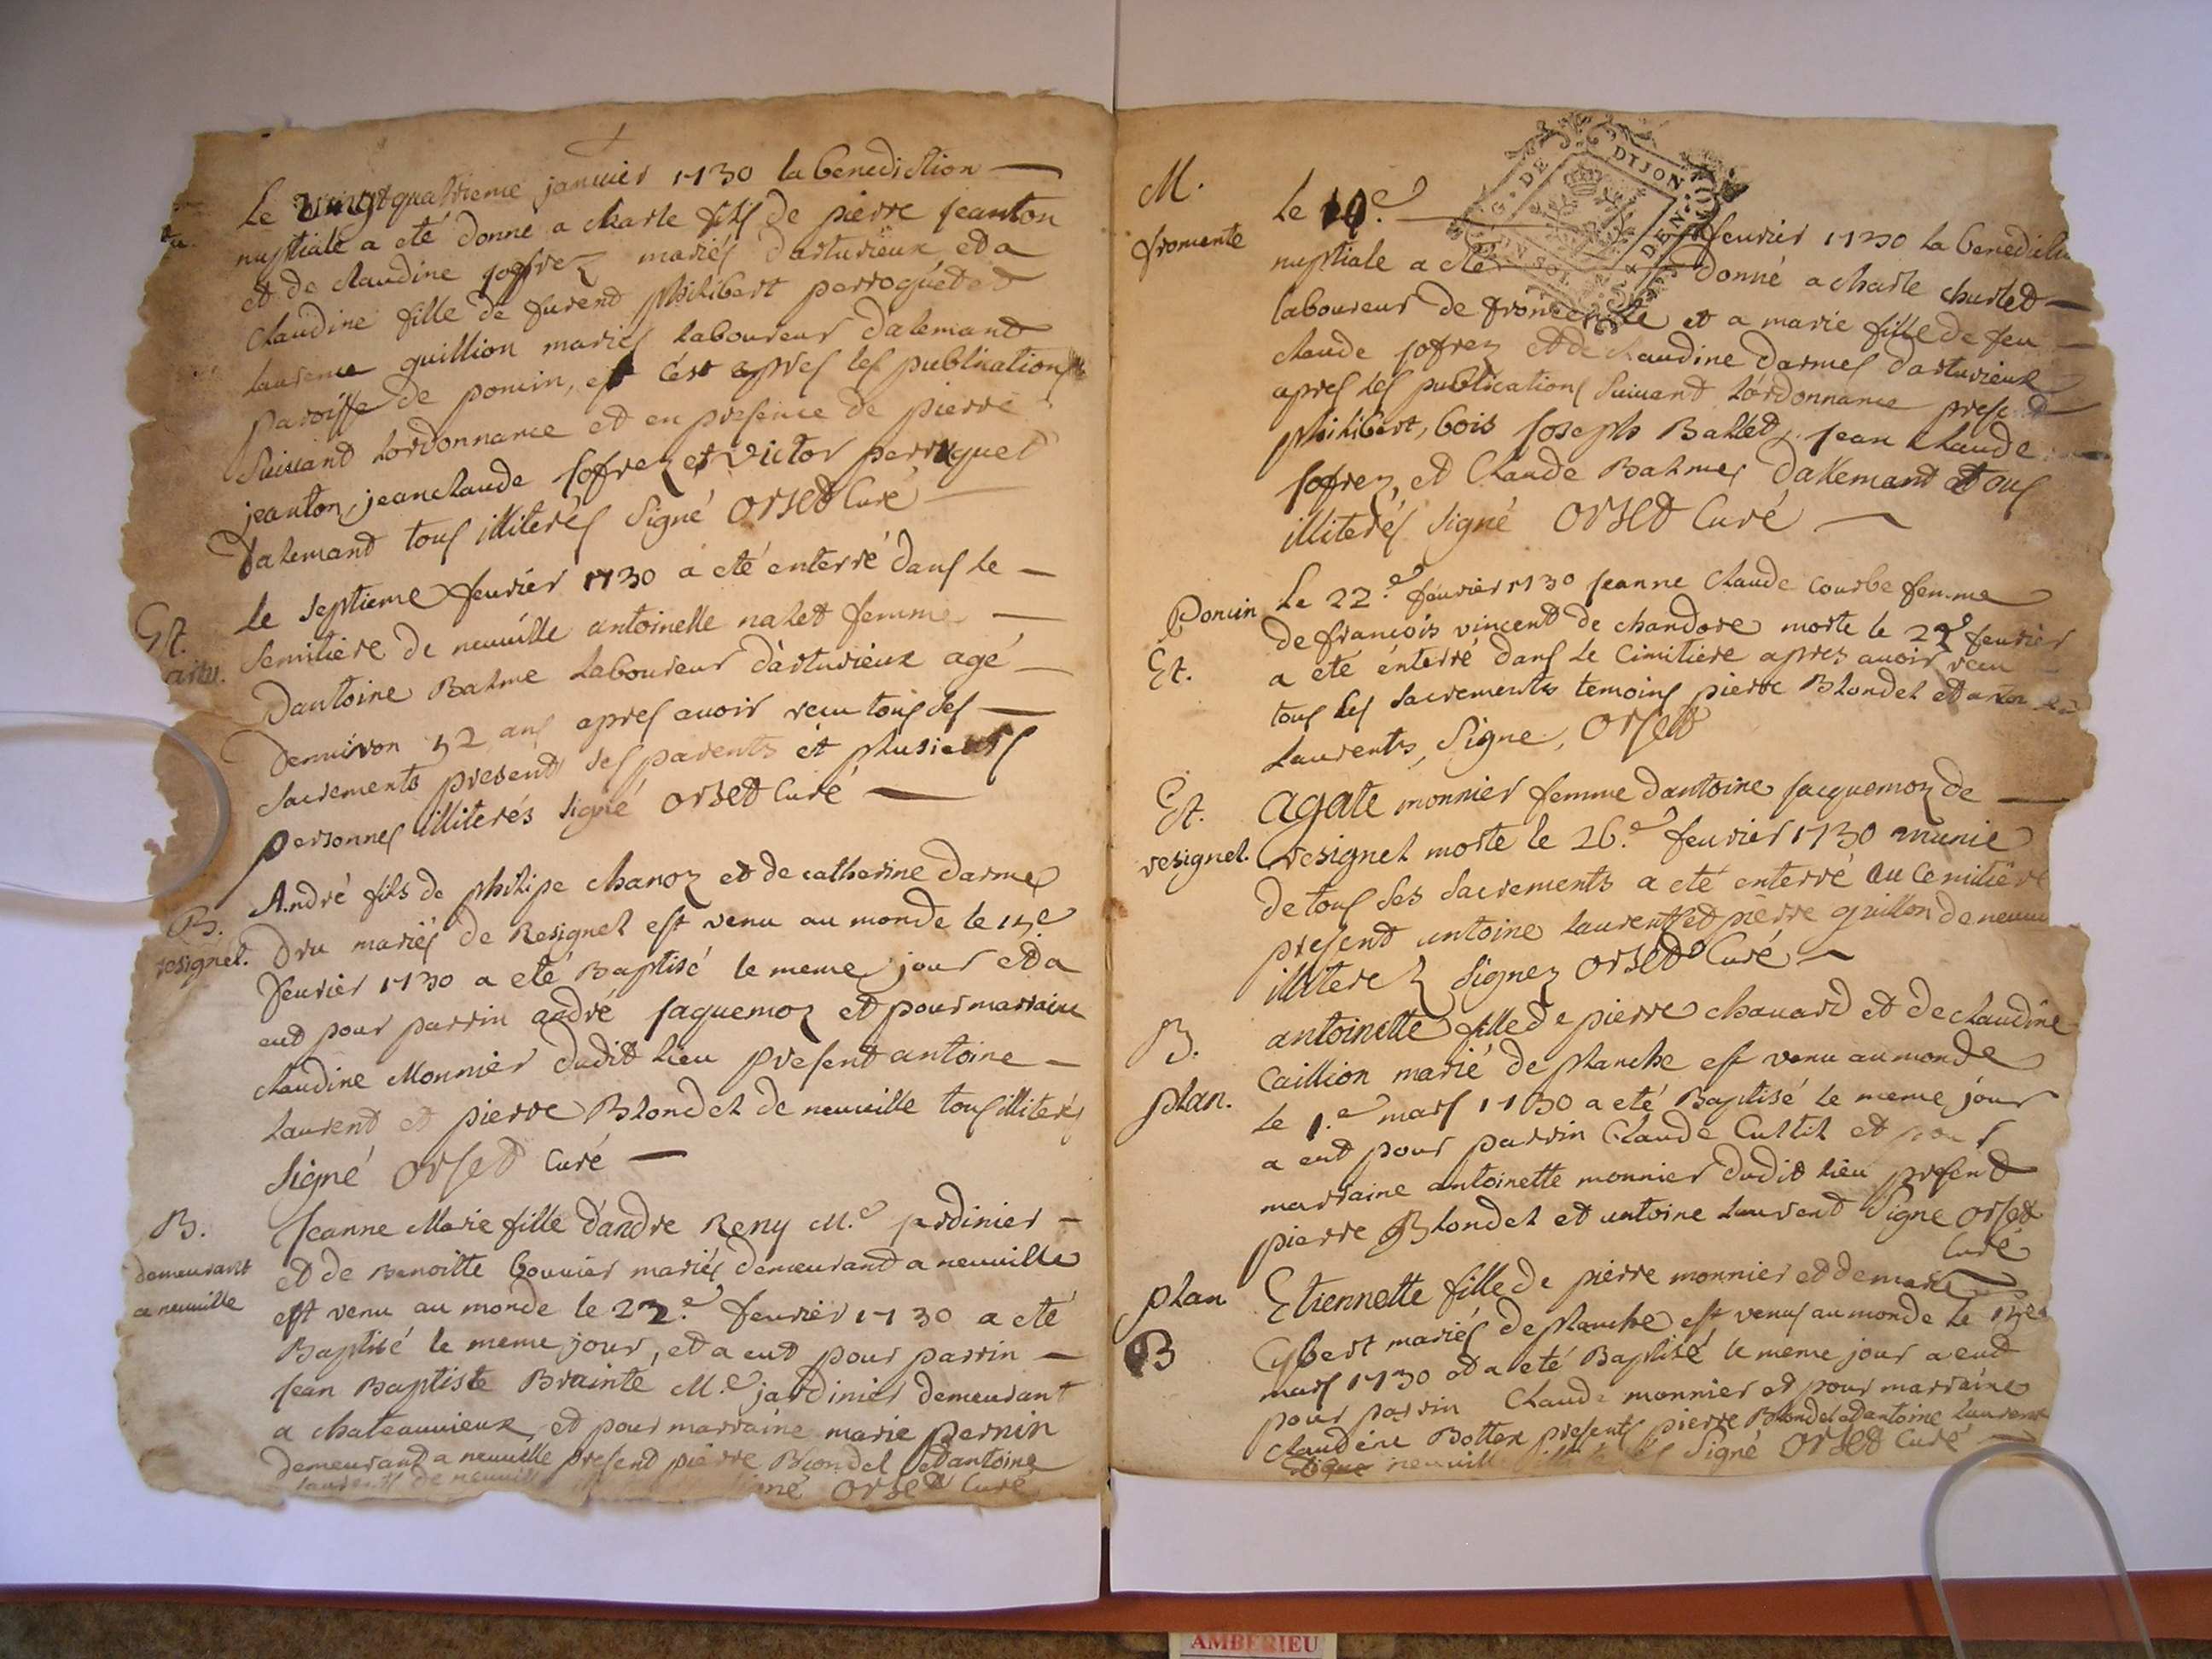 Le vingtquatrieme janvier 1730 la benediction
nuptiale a eté donné a charle fils de pierre jeanton
et de claudine joffrez mariés d'arturieux et a
claudine fille de furent philibert perroguet et
laurence guillion mariés laboureur dalemand
paroisse de poncin, c'est apres les publications
suivant lordonnance et en presence de pierre
jeanton, jeanclaude joffrez et victor perroguet
dalemand tous illiterés signé orset curé
Et.
artu.
le septieme fevrier 1730 a eté enterré dans le
semitiere de neuville antoinette nalet femme
dantoine Balme laboureur d'arturieux agé
denviron 52 ans apres avoir reçu tous ses
sacrements present ses parents et plusieurs
personnes illiterés signé orset curé
B.
resignel.
André fils de philipe chanoz et de catherine darmes
dru mariés de Resignel est venu au monde le 15e
fevrier 1730 a eté Baptisé le meme jour et a
eut pour parrin andré jaquemoz et pour marraine
claudine Monnier dudit lieu present antoine
laurent et pierre Blondel de neuville tous illiterés
signé orset curé
B.
demeurant
a neuville
Jeanne Marie fille d'andre Reny M.e jardinier
et de Benoitte bouvier mariés demeurant a neuville
est venu au monde le 22.e fevrier 1730 a eté
Baptisé le meme jour, et a eut pour parrin
jean Baptiste Brainte M.e jardinier demeurant
a chateauvieux, et pour marraine marie pernin
demeurant a neuville present pierre Blondel et antoine
laurent de neuville signé orset curé
M.
fromente
G. DE DIJON
le 10.e fevrier 1730 la benedi
nuptiale a eté donné a charle charlet
laboureur de fromente et a marie fille de feu
claude jofrez et de claudine darmes d'arturieux
apres les publications suivant l'ordonnance present
philibert, bois joseph Ballet, jean claude
jofrez, et claude Balme, dallemand tous
illiterés signé orset curé
Poncin
Et.
le 22.e fevrier 1730 jeanne claude courbe femme
de françois vincent de chandore morte le 21 fevrier
a eté enterré dans le cimitiere apres avoir reçu
tous les sacrements temoins pierre Blondel et antoine
laurents, signe, orset
Et.
resignel.
agate monnier femme dantoine jacquemoz de
resignel morte le 26.e fevrier 1730 munie
de tous ses sacrements a eté enterré au cemitiere
present antoine laurent et pierre guillon de neuv
illiterez signez orset curé
B.
plan.
antoinette fille de pierre chavard et de claudine
caillion marié de planche est venu au monde
le 1.e mars 1730 a eté Baptisé le meme jour
a eut pour parrin claude cultil et pour
marraine antoinette monnier dudit lieu present
pierre Blondel et antoine laurent signe orset
curé
plan
B
Etiennette fille de pierre monnier et de marie
Cybert mariés de planche est venus au monde le 15e
mars 1730 et a eté Baptisé le meme jour a eut
pour parrin claude monnier et pour marraine
claudine Bottex presents pierre Blondel et antoine laurent
neuville signé orset curé
AMBERIEU